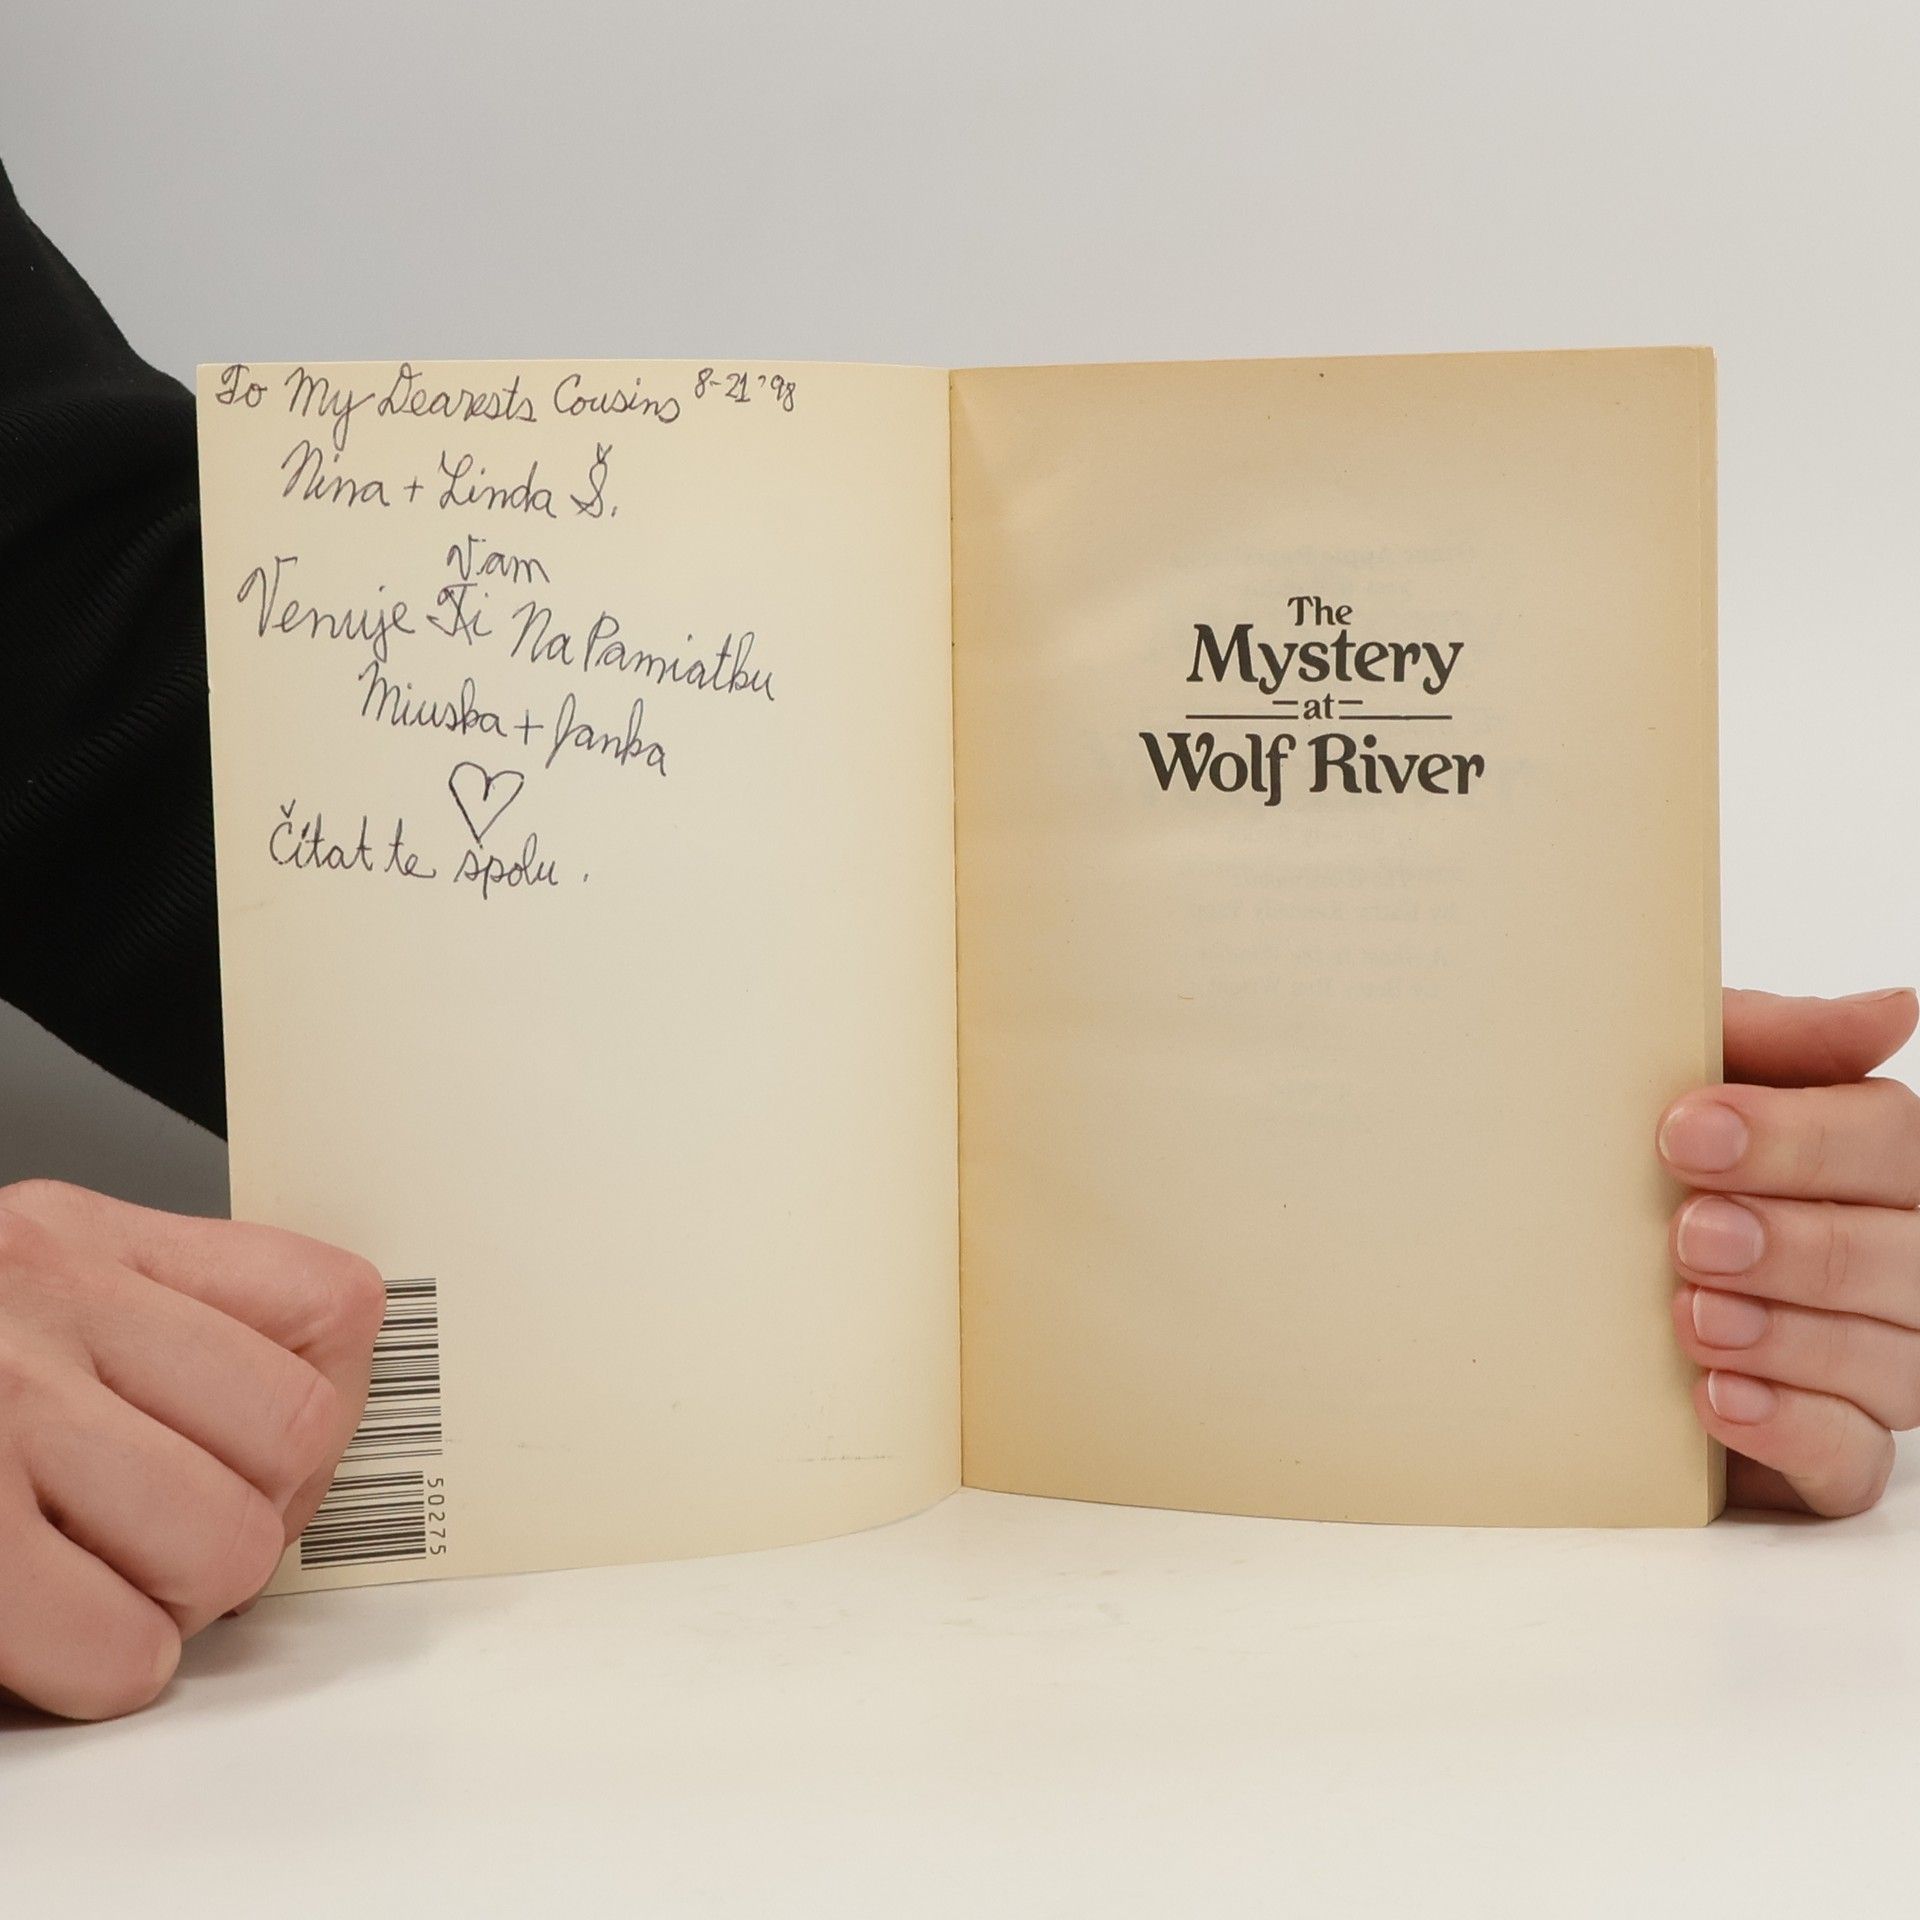 To My Dearests Cousins 8-21'98
Nina + Linda Š.
Vam
Venuje Ti Na Pamiatku
Miuska + Janka
Čitat te spolu.
The
Mystery
at
Wolf River
50275